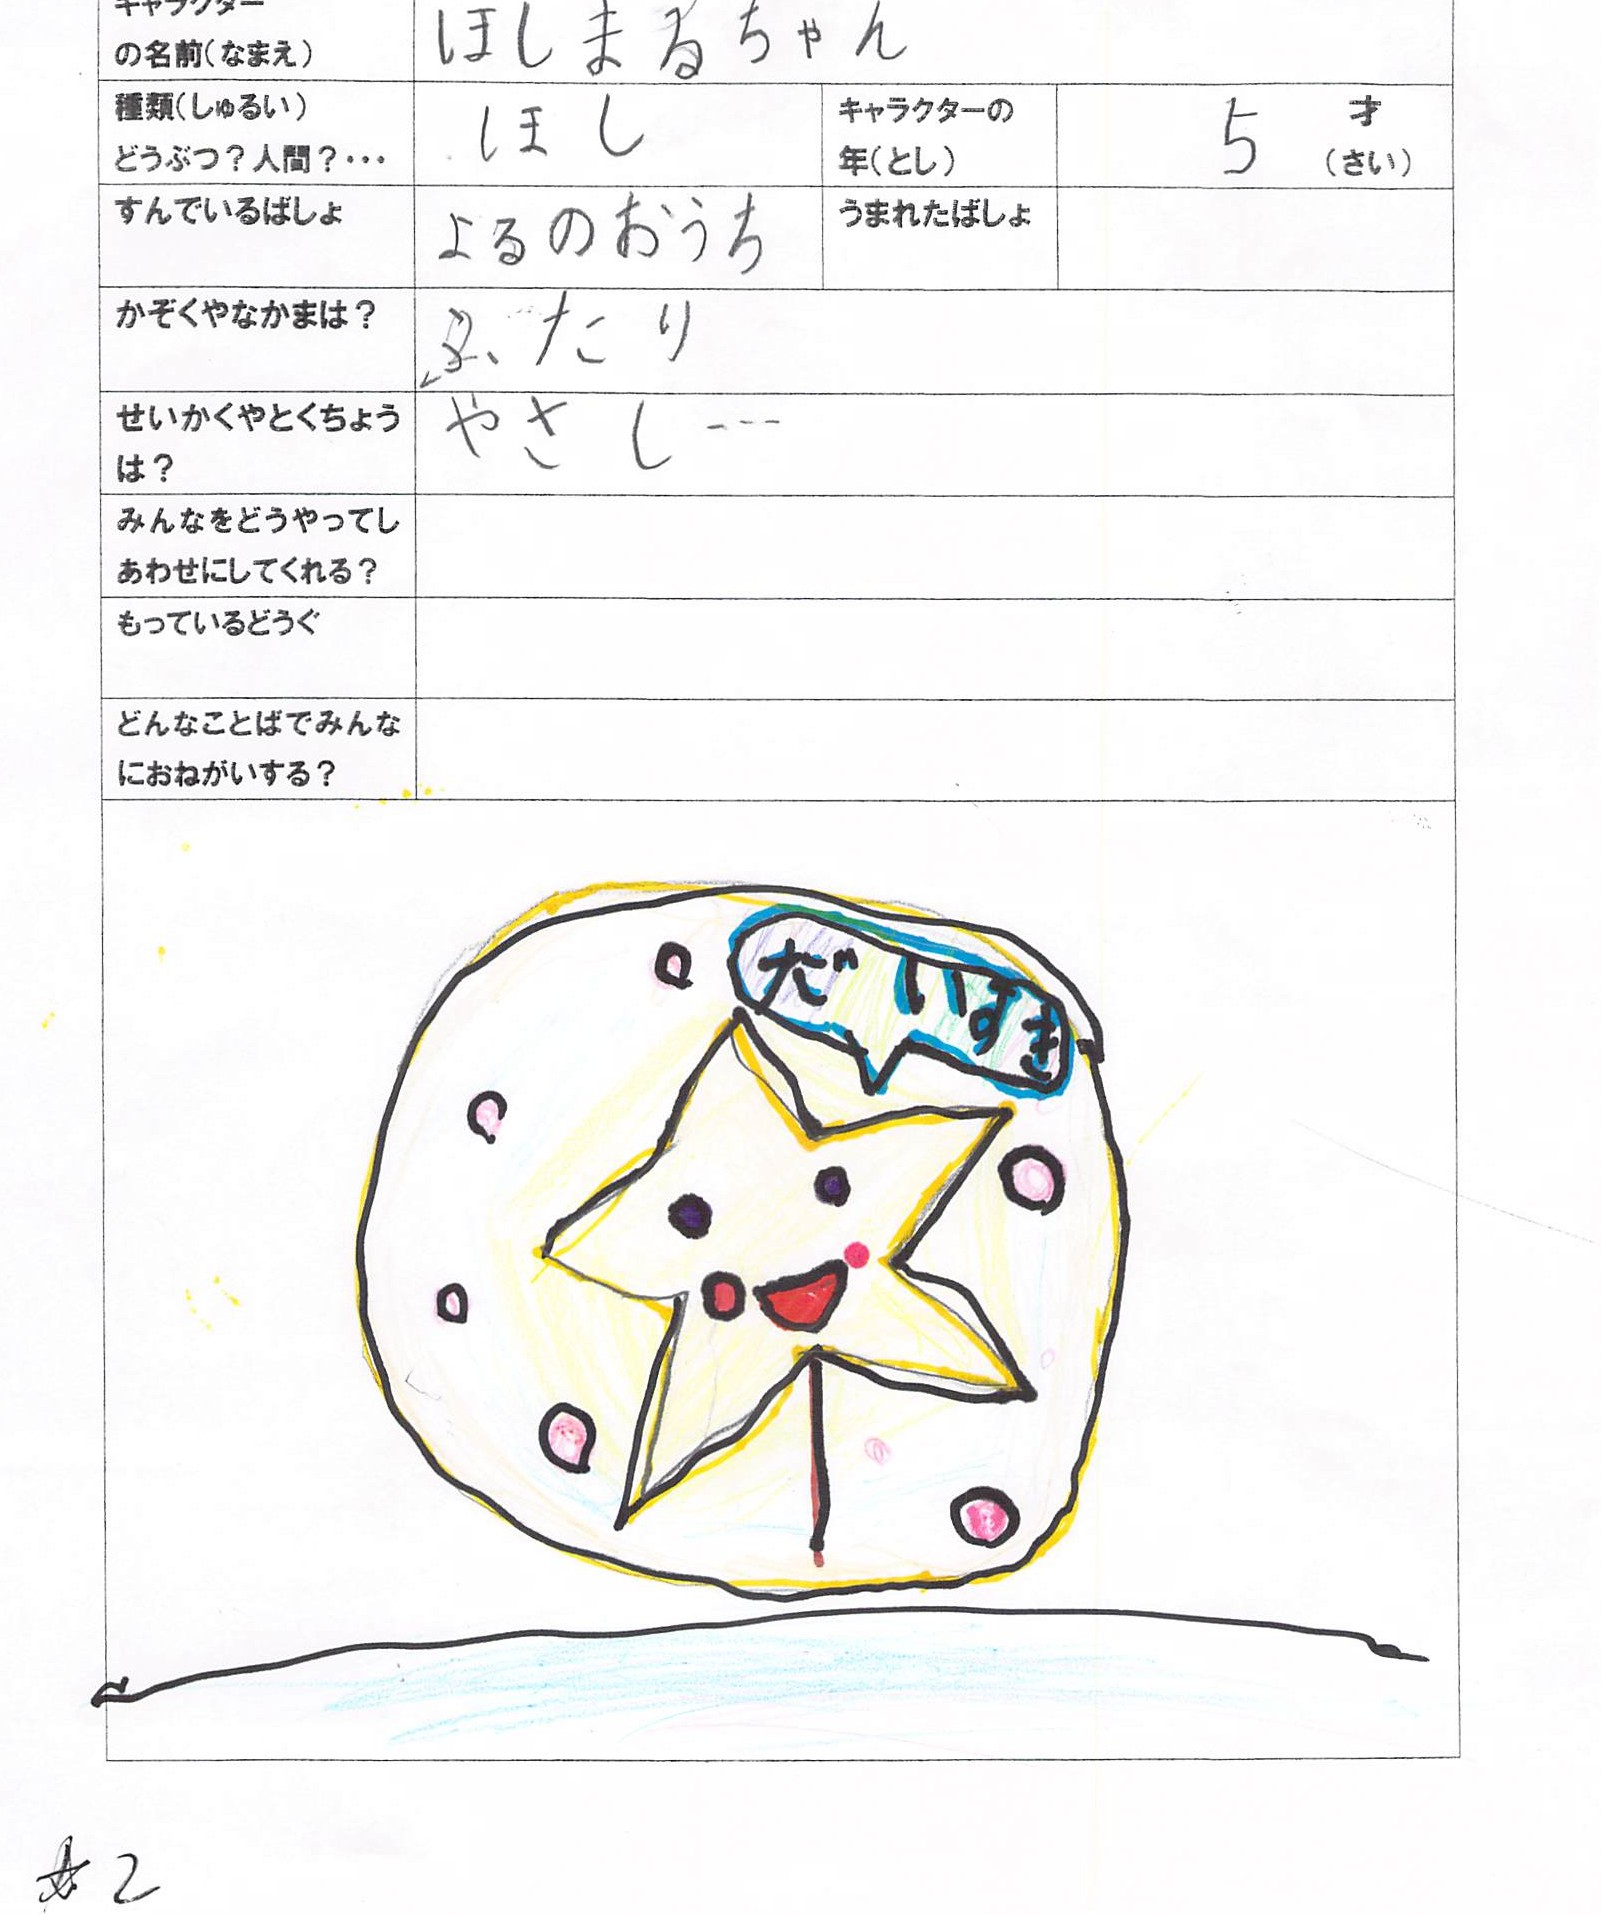 キャラクター
の名前(なまえ)
ほしまるちゃん
種類(しゅるい)
どうぶつ?人間?・・・
ほし
キャラクターの
年(とし)
5 才
(さい)
すんでいるばしょ
よるのおうち
うまれたばしょ
かぞくやなかまは?
ふたり
せいかくやとくちょう
は?
やさし・・・
みんなをどうやってし
あわせにしてくれる?
もっているどうぐ
どんなことばでみんな
におねがいする?
だいすき
☆2